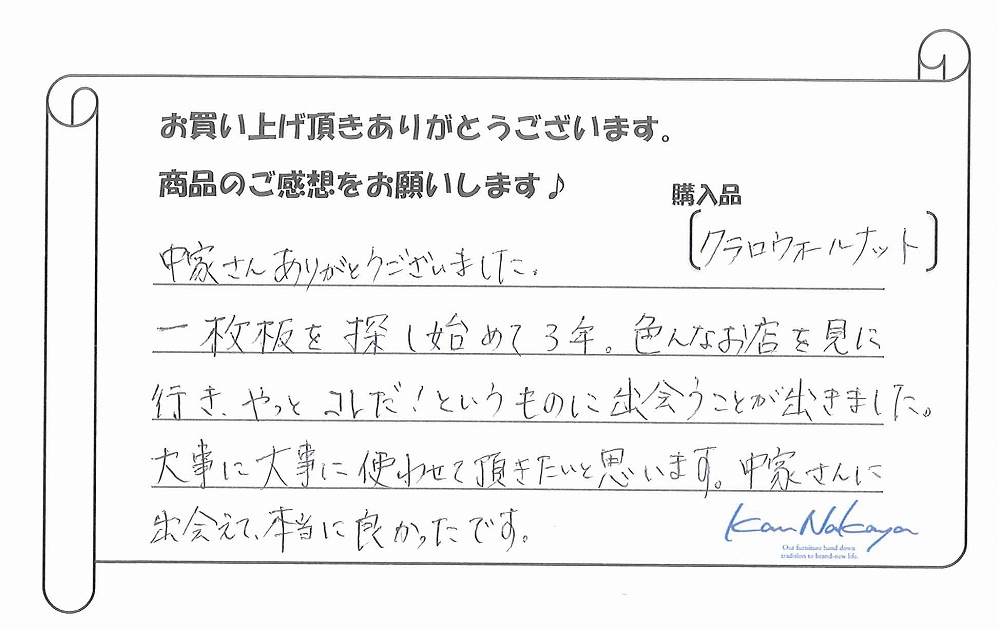 お買い上げ頂きありがとうございます。
商品のご感想をお願いします♪
購入品
[クラロウォールナット]
中家さんありがとうございました。
一枚板を探し始めて3年。色んなお店を見に
行き、やっとコレだ!というものに出会うことが出きました。
大事に大事に使わせて頂きたいと思います。中家さんに
出会えて、本当に良かったです。
Kan Nakaya
Our furniture hand down
tradition to brand-new life.